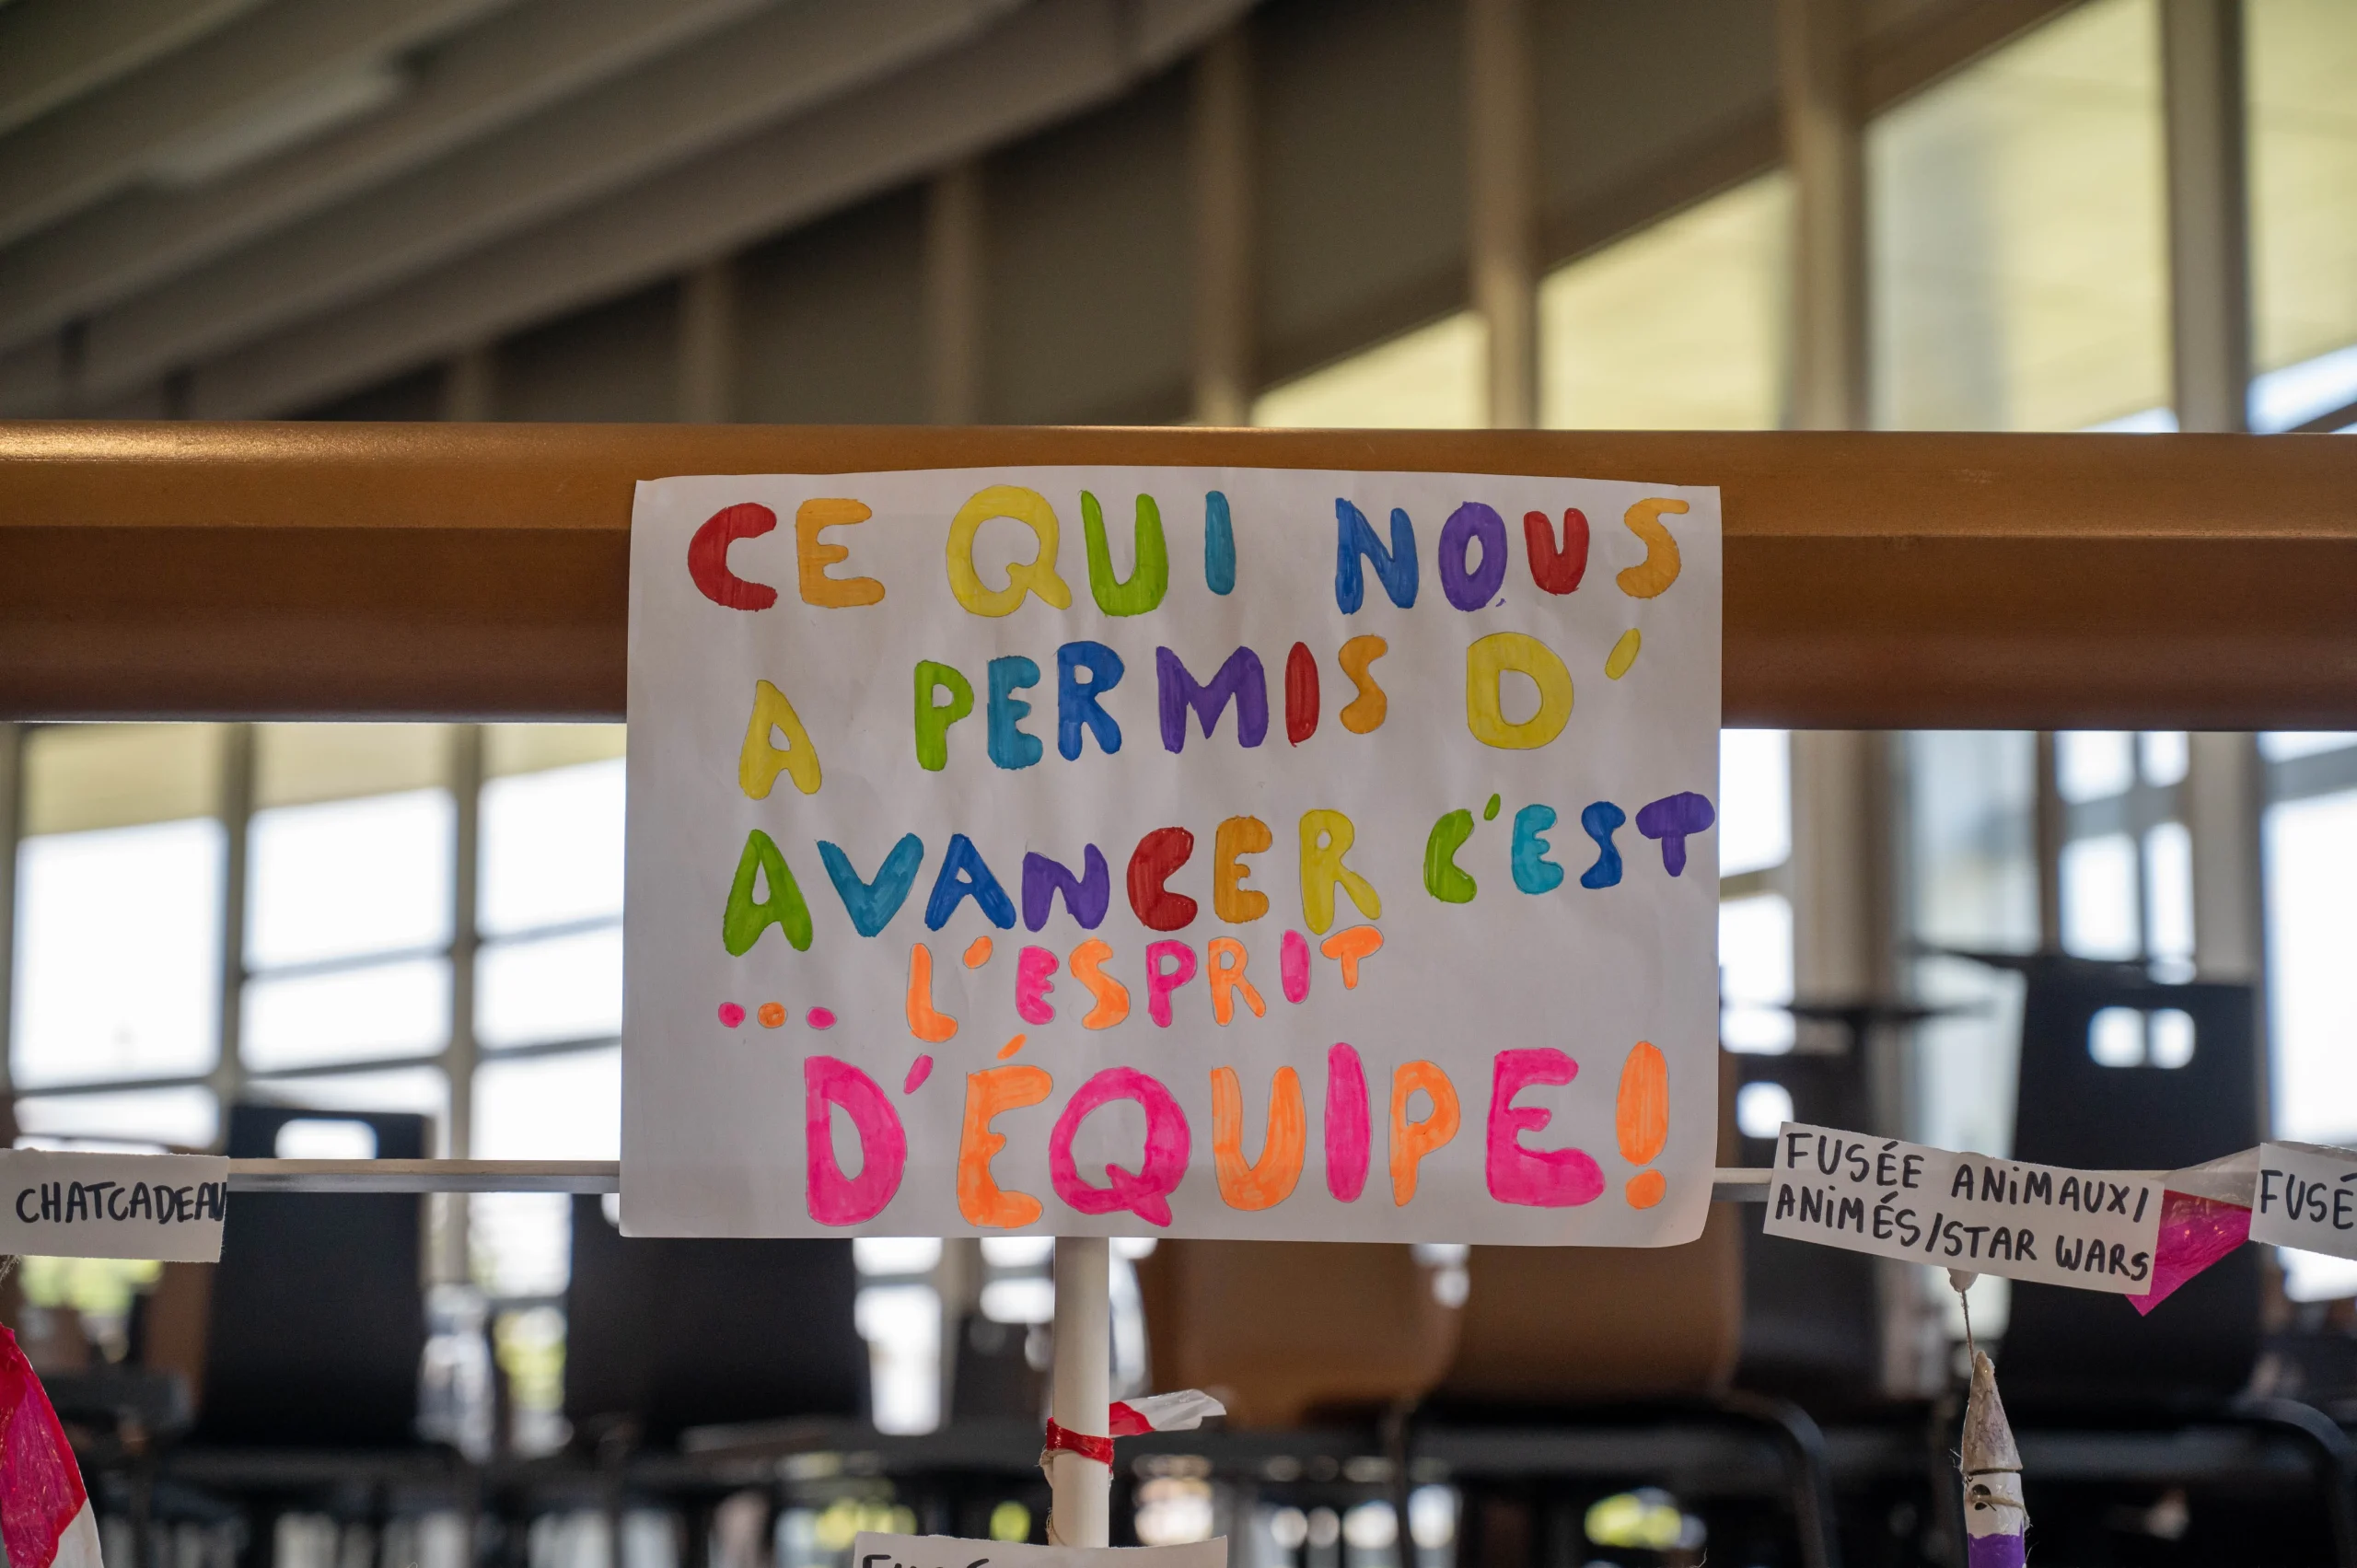 CE QUI NOUS
A PERMIS D'
AVANCER C'EST
... L'ESPRIT
D'ÉQUIPE!
CHATCADEAU
FUSÉE ANIMAUX/
ANIMÉS/STAR WARS